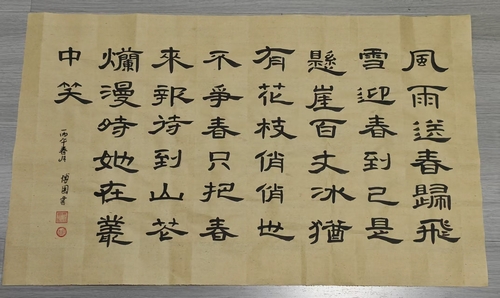 風雨送春歸飛
雪迎春到已是
懸崖百丈冰猶
有花枝俏俏也
不爭春只把春
來報待到山花
爛漫時她在叢
中笑
丙午春月 書